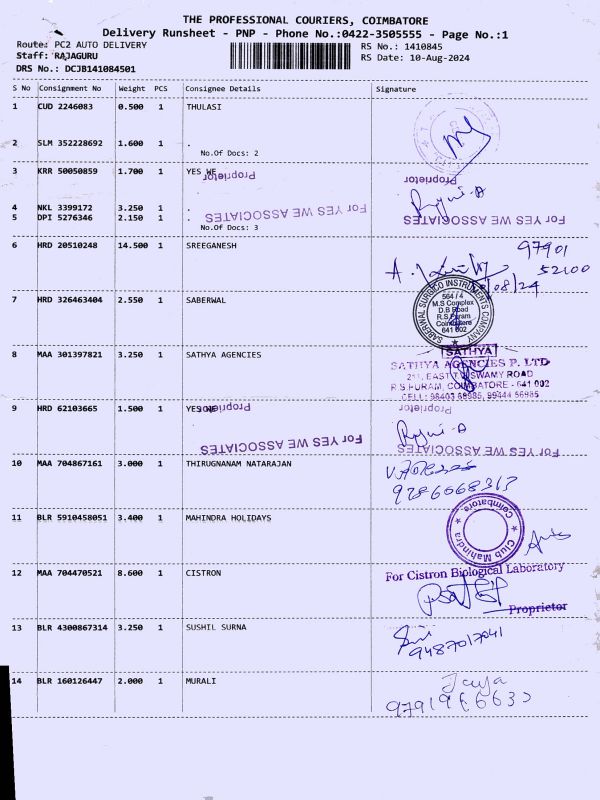 THE PROFESSIONAL COURIERS, COIMBATORE
Delivery Runsheet - PNP - Phone No.:0422-3505555 - Page No.:1
Route: PC2 AUTO DELIVERY
Staff: RAJAGURU
DRS No.: DCJB141084501
RS No.: 1410845
RS Date: 10-Aug-2024
S No Consignment No Weight PCS Consignee Details Signature
1 CUD 2246083 0.500 1 THULASI
2 SLM 352228692 1.600 1 .
No.Of Docs: 2
3 KRR 50050859 1.700 1 YES WE
Proprietor
Proprietor
4 NKL 3399172 3.250 1 .
For YES WE ASSOCIATES
5 DPI 5276346 2.150 1 .
For YES WE ASSOCIATES
No.Of Docs: 3
6 HRD 20510248 14.500 1 SREEGANESH
97901
52100
/08/24
7 HRD 326463404 2.550 1 SABERWAL
SABERWAL SURGICO INSTRUMENTS COMPANY
564 / 4
M.S Complex
D.B Road
R.S.Puram
Coimbatore
641 002
8 MAA 301397821 3.250 1 SATHYA AGENCIES
SATHYA
SATHYA AGENCIES P. LTD
R.S.PURAM, COIMBATORE - 641 002
9 HRD 62103665 1.500 1 YES
Proprietor
Proprietor
For YES WE ASSOCIATES
For YES WE ASSOCIATES
10 MAA 704867161 3.000 1 THIRUGNANAM NATARAJAN
11 BLR 5910458051 3.400 1 MAHINDRA HOLIDAYS
Club Mahindra
Coimbatore
12 MAA 704470521 8.600 1 CISTRON
For Cistron Biological Laboratory
Proprietor
13 BLR 4300867314 3.250 1 SUSHIL SURNA
9487017041
14 BLR 160126447 2.000 1 MURALI
Jaya